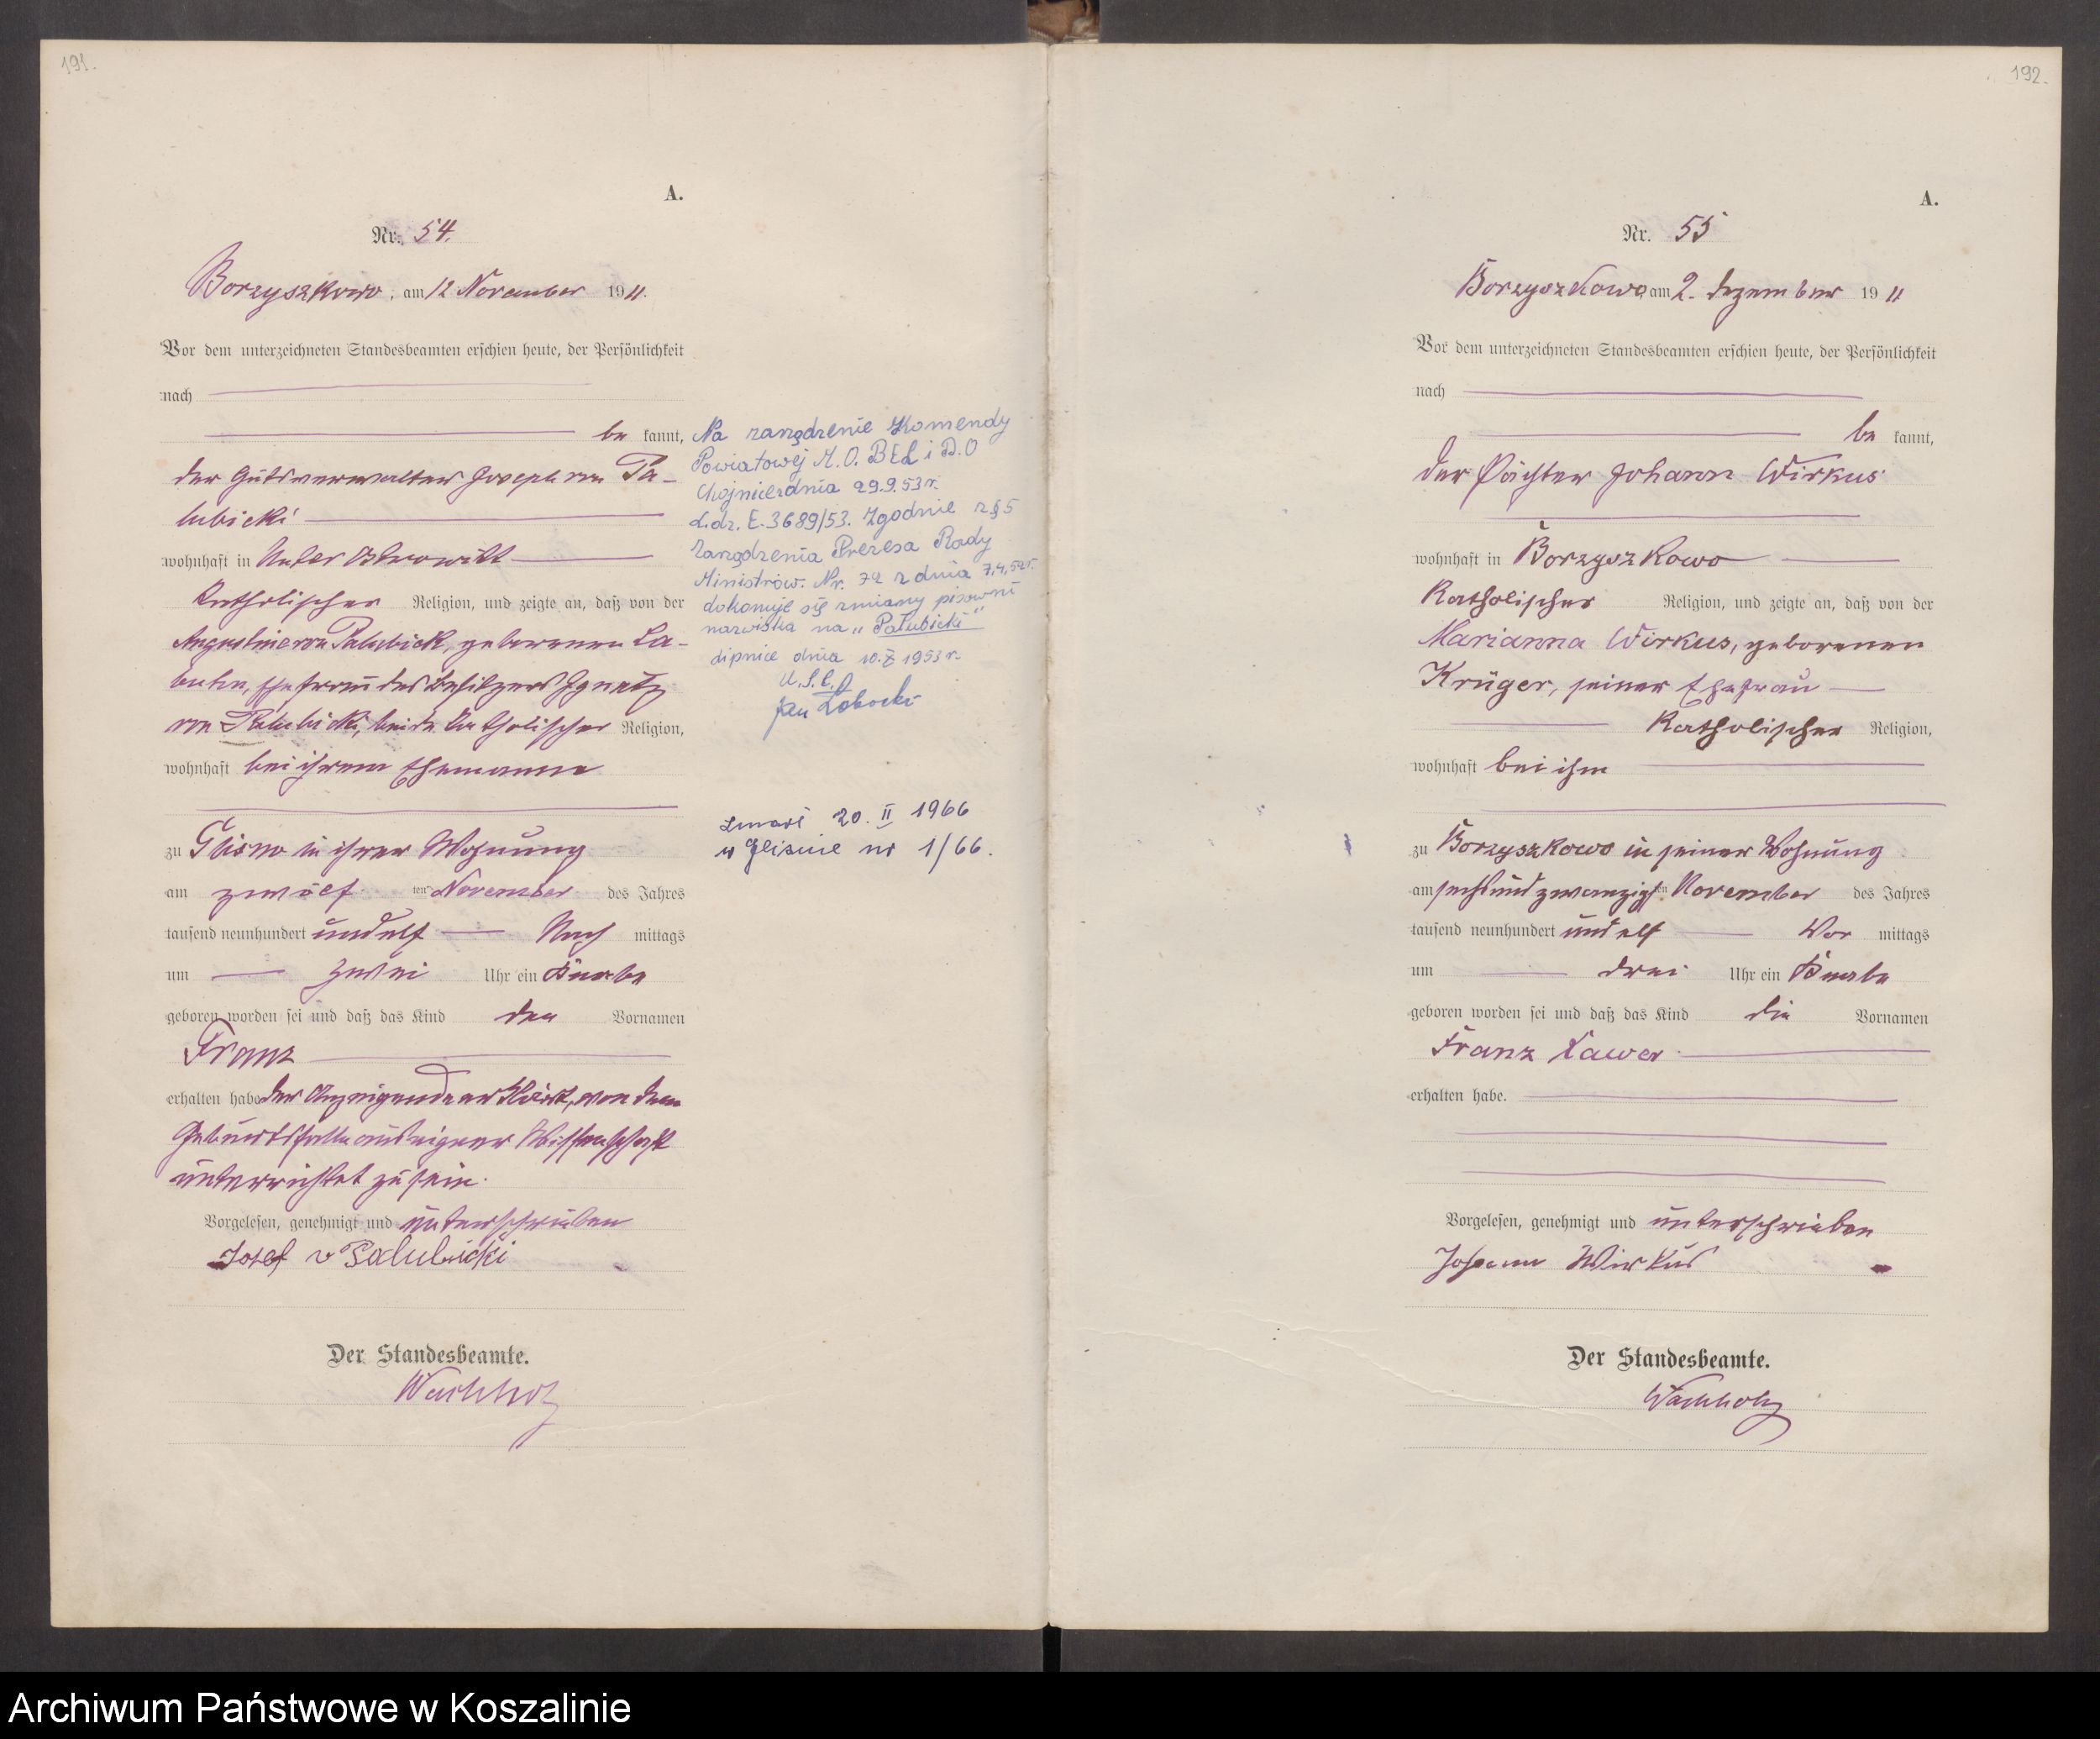 191.
A.
Nr. 54.
Borzyszkowo, am 12 November 1911.
Vor dem unterzeichneten Standesbeamten erschien heute, der Persönlichkeit
nach
be kannt,
der Gutsverwalter Joseph von Pa-
lubicki
wohnhaft in Unter Ostrowitt
katholischer Religion, und zeigte an, daß von der
Augustine von Palubicki, geborenen La-
Ehefrau des Besitzers Ignatz
von Palubicki, beide katholischer Religion,
wohnhaft bei ihrem Ehemanne
zu Glisno in ihrer Wohnung
am zwölf ten November des Jahres
tausend neunhundert und elf Nach mittags
um zwei Uhr ein Knabe
geboren worden sei und daß das Kind den Vornamen
Franz
erhalten habe der Anzeigende erklärt, von dem
Geburtsfalle aus eigener Wissenschaft
unterrichtet zu sein.
Vorgelesen, genehmigt und unterschrieben
Josef v Palubicki
Der Standesbeamte.
Wachholz
Na zarządzenie Komendy
Powiatowej M.O. BEL i D.O
Chojnice dnia 29.9.53 r.
L.dz. E. 3689/53. Zgodnie z § 5
Zarządzenia Prezesa Rady
Ministrów. Nr. 72 z dnia 7.4.52 r.
dokonuje się zmiany pisowni
nazwiska na „Pałubicki"
Lipnice dnia 10.X 1953 r.
U.S.C.
Jan
zmarł 20. II 1966
w Glisnie nr 1/66.
192.
A.
Nr. 55
Borzyszkowo am 2. Dezember 1911
Vor dem unterzeichneten Standesbeamten erschien heute, der Persönlichkeit
nach
be kannt,
der Pächter Johann Wirkus
wohnhaft in Borzyszkowo
katholischer Religion, und zeigte an, daß von der
Marianna Wirkus, geborenen
Krüger, seiner Ehefrau
katholischer Religion,
wohnhaft bei ihm
zu Borzyszkowo in seiner Wohnung
am sechsundzwanzigsten November des Jahres
tausend neunhundert und elf Vor mittags
um drei Uhr ein Knabe
geboren worden sei und daß das Kind die Vornamen
Franz Xawer
erhalten habe.
Vorgelesen, genehmigt und unterschrieben
Johann Wirkus
Der Standesbeamte.
Wachholz
Archiwum Państwowe w Koszalinie